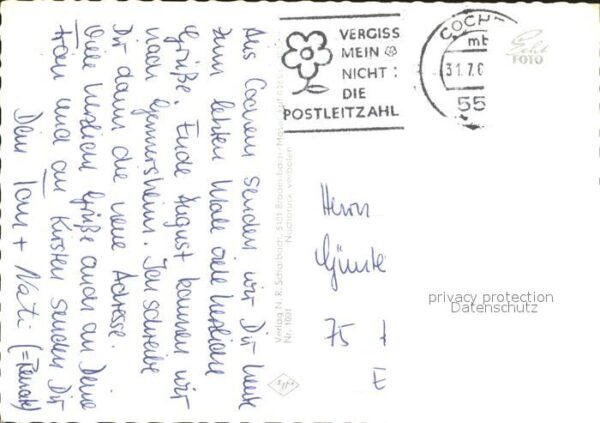 Aus Cochem senden wir Dir heute
zum letzten Male viele herzliche
Grüße. Ende August kommen wir
nach Germersheim. Ich schreibe
Dir dann die neue Adresse.
Viele herzliche Grüße auch an Deine
Frau und an Kirsten senden Dir
Dein Tom + Nati (=Renate)
Verlag N. R. Scharbach, 5101
Nachdruck verboten
Nr. 1001
VERGISS
MEIN
NICHT:
DIE
POSTLEITZAHL
COCH
mb
31.7.6
55
Echt
FOTO
Herrn
Günte
75
E
privacy protection
Datenschutz